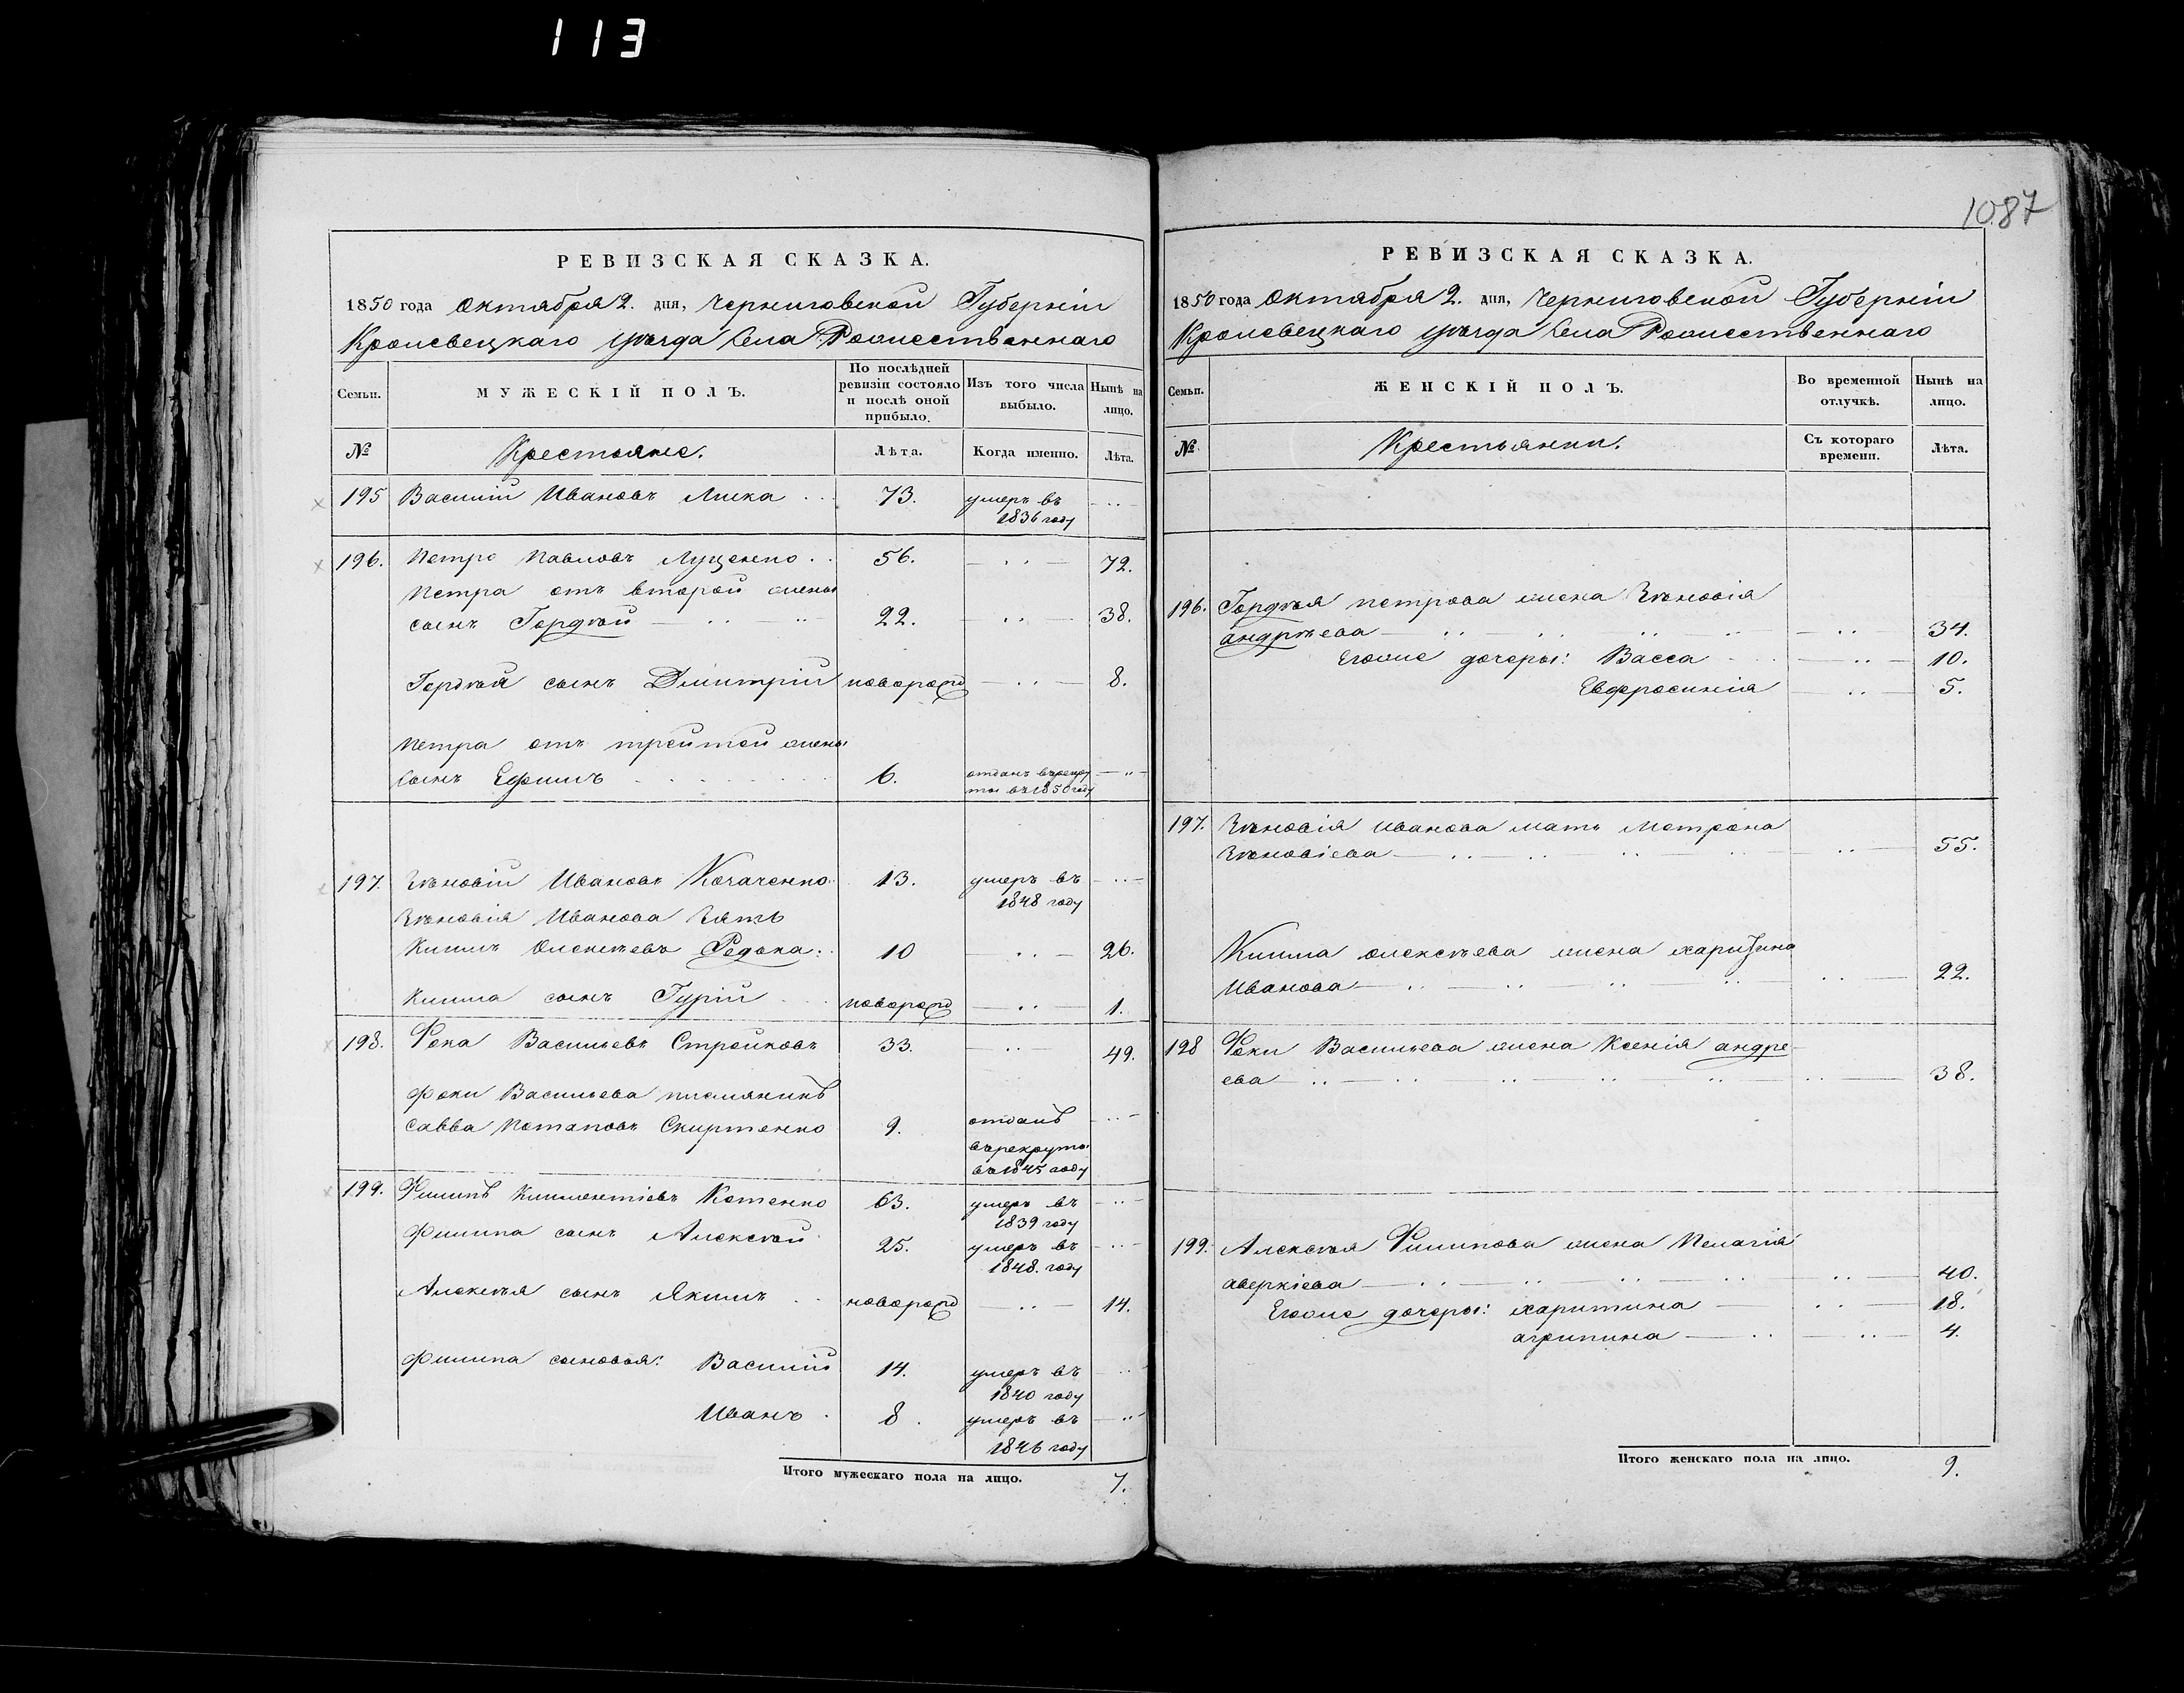 113
1087
РЕВИЗСКАЯ СКАЗКА.
1850 года Октября 2. дня, Черниговской Губерніи
Кролевецкаго уѣзда Села Рожественнаго
Семьи.
МУЖЕСКІЙ ПОЛЪ.
По послѣдней ревизіи состояло и послѣ оной прибыло.
Изъ того числа выбыло.
Нынѣ на лицо.
№
Крестьяне.
Лѣта.
Когда именно.
Лѣта.
195 Василій Ивановъ Лика 73. умеръ въ
1836 году
196. Петро Павловъ Луценко 56. 72.
Петра отъ второй жены
сынъ Гордѣй 22. 38.
Гордѣя сынъ Дмитрій новорожд 8.
Петра отъ третьей жены
сынъ Ефимъ 6. отданъ врекру
ты въ 1850 году
197. Зѣновій Ивановъ Козаченко 13. умеръ въ
1848 году
Зѣновія Иванова Зять
Климъ Олексѣевъ Редька 10 26.
Клима сынъ Гурій новорожд 1.
198. Фока Васильевъ Стрелковъ 33. 49.
Фоки Васильева племяникъ
Савва Потаповъ Скиртенко 9. отданъ
врекруты
въ 1845 году
199. Филипъ Климентіевъ Котенко 63. умеръ въ
1839 году
Филипа сынъ Алексѣй 25. умеръ въ
1848. году
Алексѣя сынъ Якимъ новорожд 14.
Филипа сыновья: Василій 14. умеръ въ
1840 году
Иванъ 8. умеръ въ
1846 году
Итого мужескаго пола на лицо. 7.
РЕВИЗСКАЯ СКАЗКА.
1850 года Октября 2. дня, Черниговской Губерніи
Кролевецкаго уѣзда Села Рожественнаго
Семьи.
ЖЕНСКІЙ ПОЛЪ.
Во временной отлучкѣ.
Нынѣ на лицо.
№
Крестьянки.
Съ котораго времени.
Лѣта.
196. Гордѣя петрова жена Зѣновія
андрѣева 34.
Егоже дочеры: Васса 10.
Евфросинія 5.
197. Зѣновія Иванова мать Мотрона
Зѣновіева 55.
Клима олексѣева жена харитина
Иванова 22.
198 Фоки Васильева жена Ксенія андре
ева 38.
199. Алексѣя Филипова жена Пелагія
аверкіева 40.
Егоже дочеры: харитина 18.
агрипина 4.
Итого женскаго пола на лицо. 9.